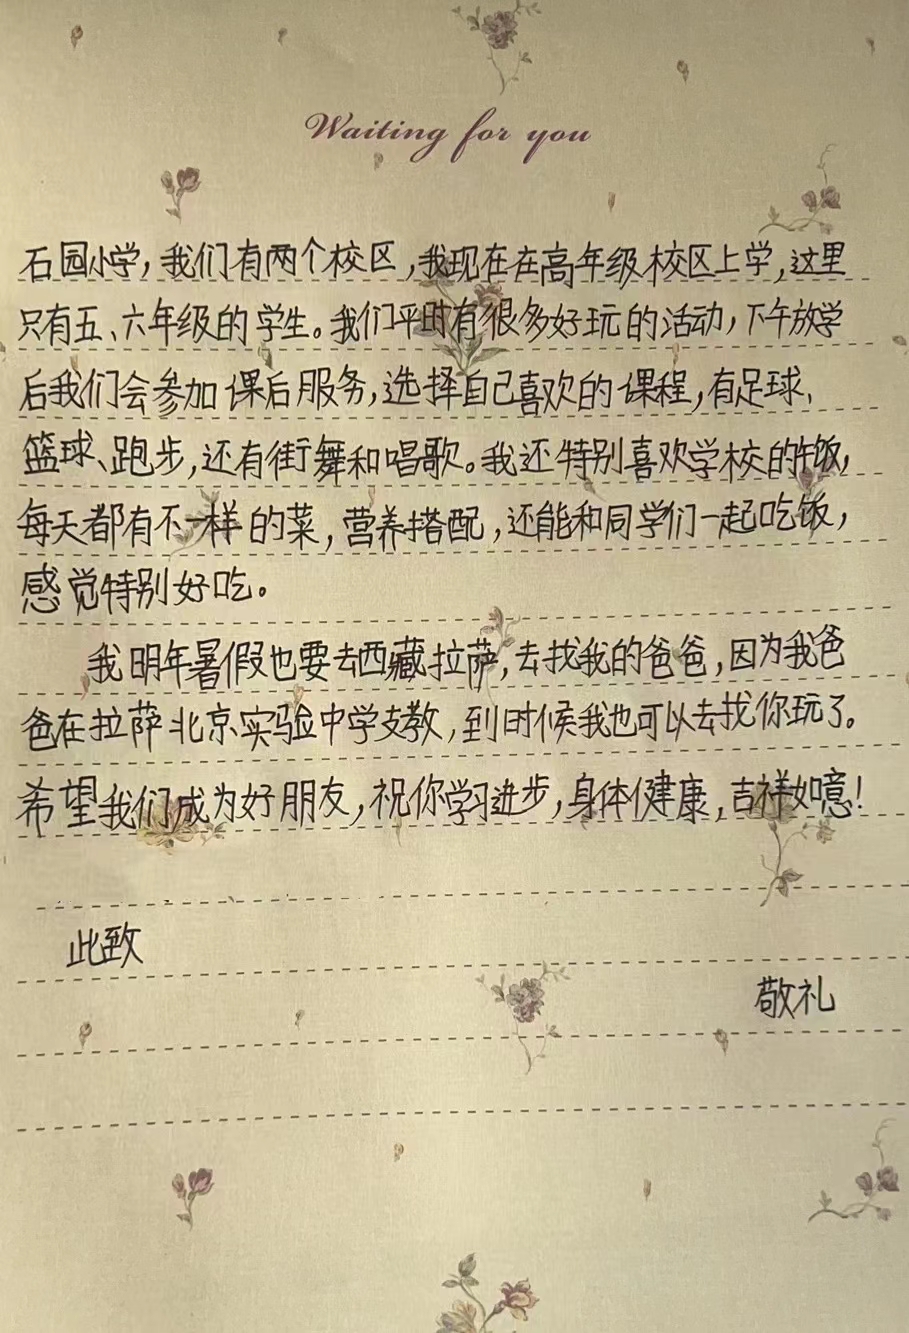 Waiting for you
石园小学,我们有两个校区,我现在在高年级校区上学,这里
只有五、六年级的学生。我们平时有很多好玩的活动,下午放学
后我们会参加课后服务,选择自己喜欢的课程,有足球、
篮球、跑步,还有街舞和唱歌。我还特别喜欢学校的午饭,
每天都有不一样的菜,营养搭配,还能和同学们一起吃饭,
感觉特别好吃。
我明年暑假也要去西藏拉萨,去找我的爸爸,因为我爸
爸在拉萨北京实验中学支教,到时候我也可以去找你玩了。
希望我们成为好朋友,祝你学习进步,身体健康,吉祥如意!
此致
敬礼